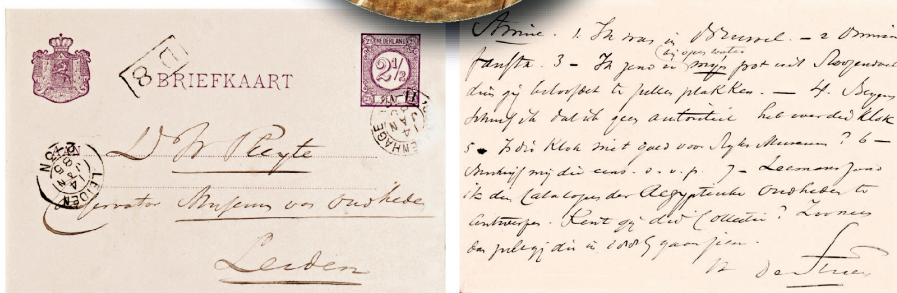 BRIEFKAART
NEDERLAND
2 1/2
D 8
Dr W Pleyte
LEIDEN
Conservator Museum van Oudheden
Leiden
Amice. 1. Ik was in Brussel. — 2 Omnia
fausta. 3 — Ik zend u
(bij open water)
mijn
die gij belooft te zullen plakken. — 4.
schrijf ik dat ik geen autoriteit heb over die klok
5. Is die klok niet goed voor Ryks Museum? 6 —
mij die eens. s. v. p. 7 — Leemans zond
ik den Catalogus der Aegyptische Oudheden te
Antwerpen. Kent gij die Collectie? Zoo neen
dan zult gij die in 1885 gaan zien.
de Stuers